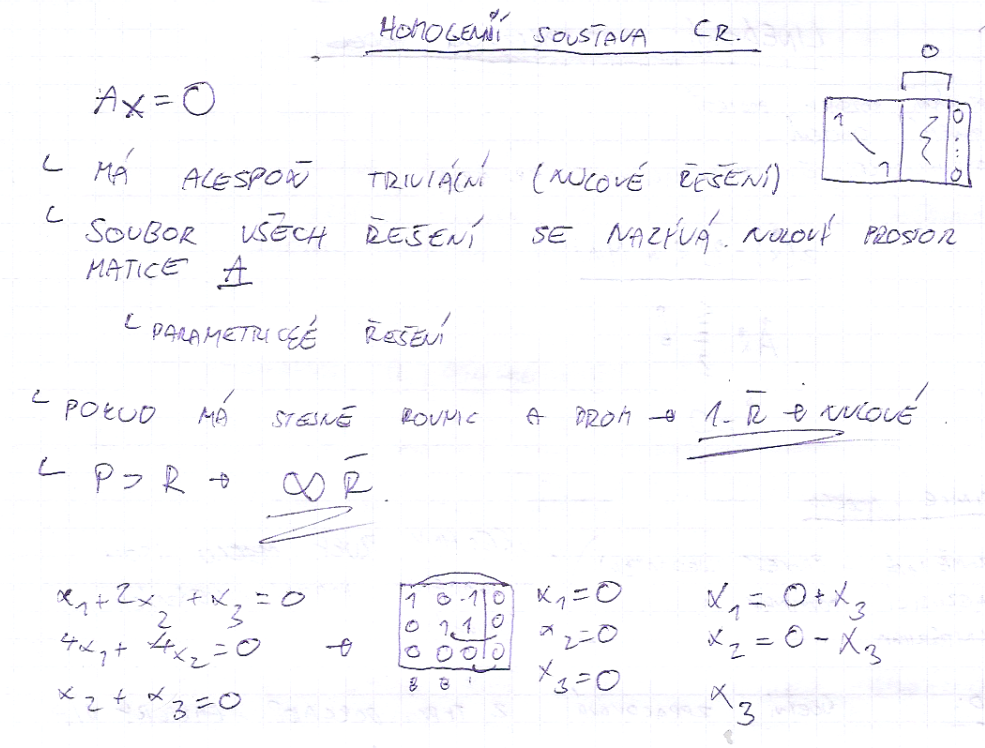 HOMOGENNÍ SOUSTAVA LR.
Ax = 0
0
1 0
1 0
└ MÁ ALESPOŇ TRIVIÁLNÍ (NULOVÉ ŘEŠENÍ)
└ SOUBOR VŠECH ŘEŠENÍ SE NAZÝVÁ NULOVÝ PROSTOR
MATICE A
└ PARAMETRICKÉ ŘEŠENÍ
└ POKUD MÁ STEJNĚ ROVNIC A PROM → 1. Ř → NULOVÉ.
└ P > R → ∞ Ř.
x₁ + 2x₂ + x₃ = 0
4x₁ + 4x₂ = 0 →
x₂ + x₃ = 0
1 0 -1 | 0
0 1 1 | 0
0 0 0 | 0
x₁ = 0
x₂ = 0
x₃ = 0
x₁ = 0 + x₃
x₂ = 0 - x₃
x₃